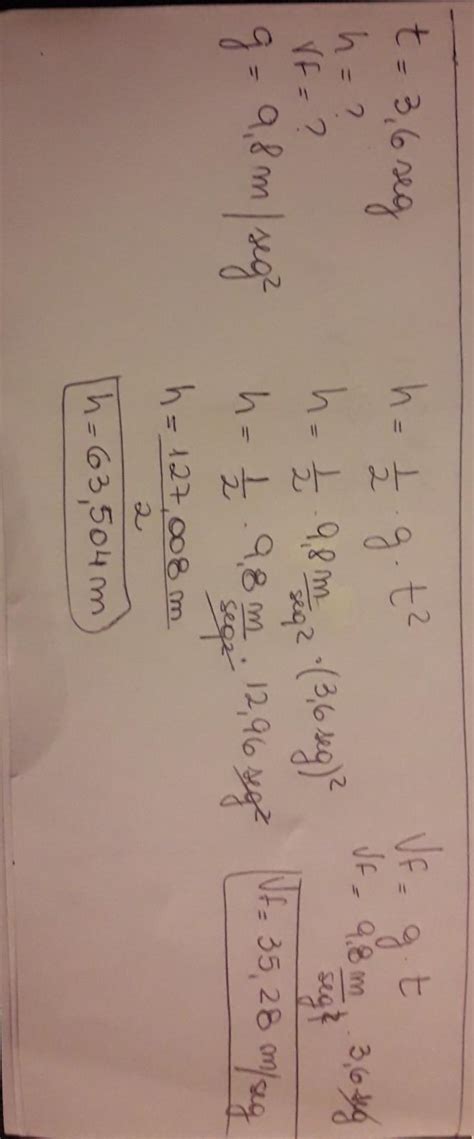 t = 3,6 seg
h = ?
Vf = ?
g = 9,8 m / seg²
h = 1/2 · g · t²
h = 1/2 · 9,8 m/seg² · (3,6 seg)²
h = 1/2 · 9,8 m/seg² · 12,96 seg²
h = 127,008 m / 2
h = 63,504 m
Vf = g · t
Vf = 9,8 m/seg² · 3,6 seg
Vf = 35,28 m/seg